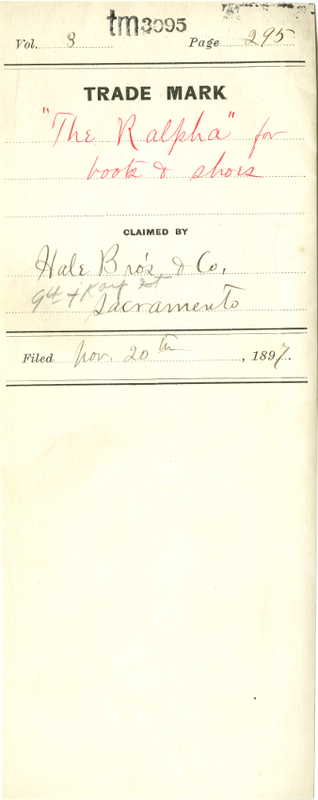 tm3095
Vol. 3 Page 295
TRADE MARK
"The Ralpha" for
boots & shoes
CLAIMED BY
Hale Bro's & Co,
9th & Kay st
Sacramento
Filed Nov. 20th, 1897.